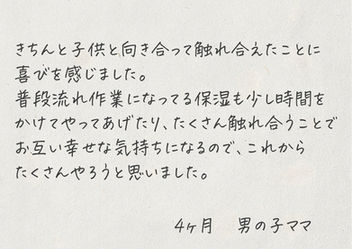 きちんと子供と向き合って触れ合えたことに
喜びを感じました。
普段流れ作業になってる保湿も少し時間を
かけてやってあげたり、たくさん触れ合うことで
お互い幸せな気持ちになるので、これから
たくさんやろうと思いました。
4ヶ月 男の子ママ